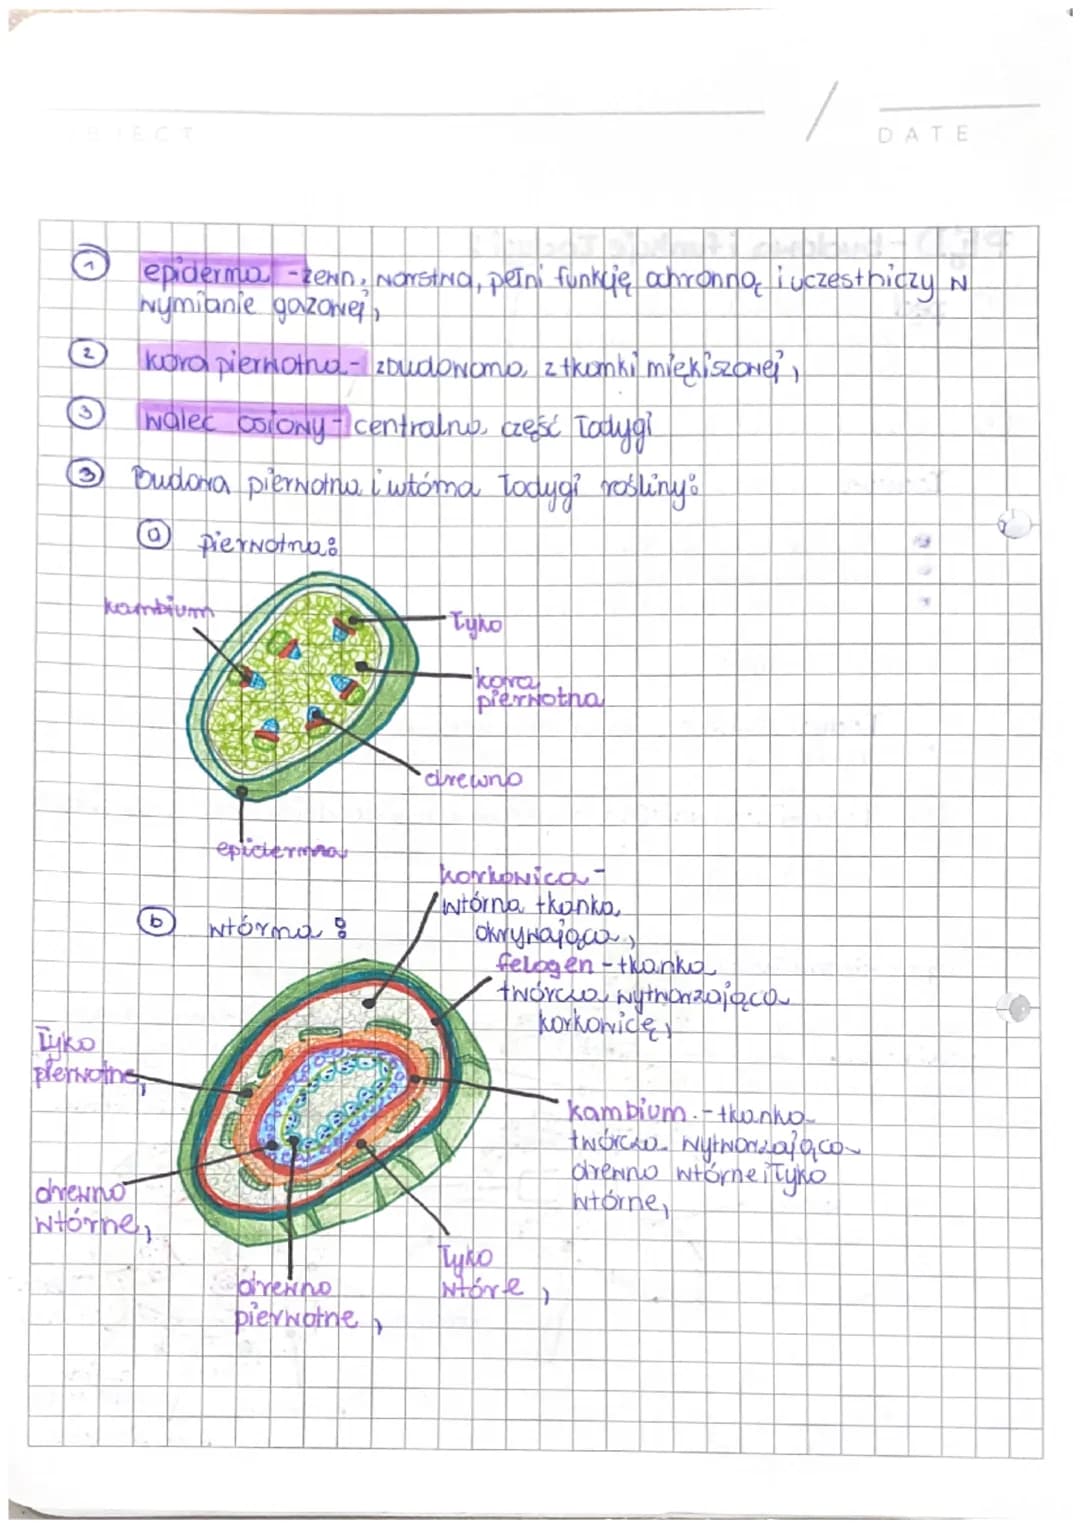 SUBJECT
DATE
1 epiderma - zewn. warstwa, pełni funkcję ochronną i uczestniczy w
wymianie gazowej,
2 kora pierwotna - zbudowana z tkanki miękiszowej,
3 walec osiowy - centralna część łodygi
3 Budowa pierwotna i wtórna łodygi rośliny:
a pierwotna:
kambium
łyko
kora
pierwotna
drewno
epiderma
b wtórna:
korkowica -
wtórna tkanka
okrywająca,
felogen - tkanka
twórcza wytwarzająca
korkowicę,
łyko
pierwotne,
kambium. - tkanka
twórcza wytwarzająca
drewno wtórne i łyko
wtórne,
drewno
wtórne,
łyko
wtóre,
drewno
pierwotne,